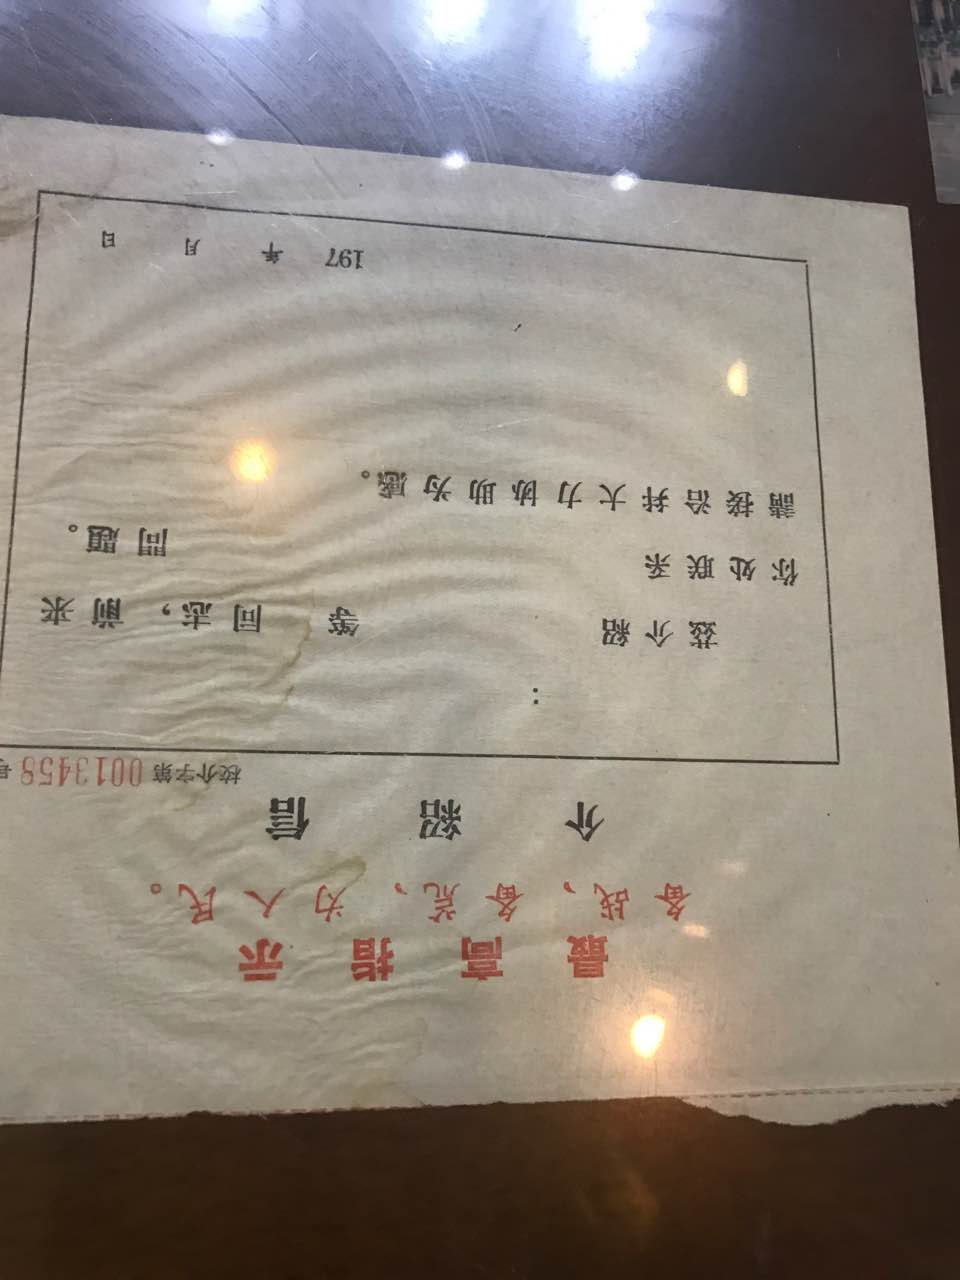 最高指示
备战、备荒、为人民。
介紹信
校介字第0013458号
:
茲介紹 等 同志,前来
你处联系 問題。
請接洽幷大力协助为感。
197 年 月 日